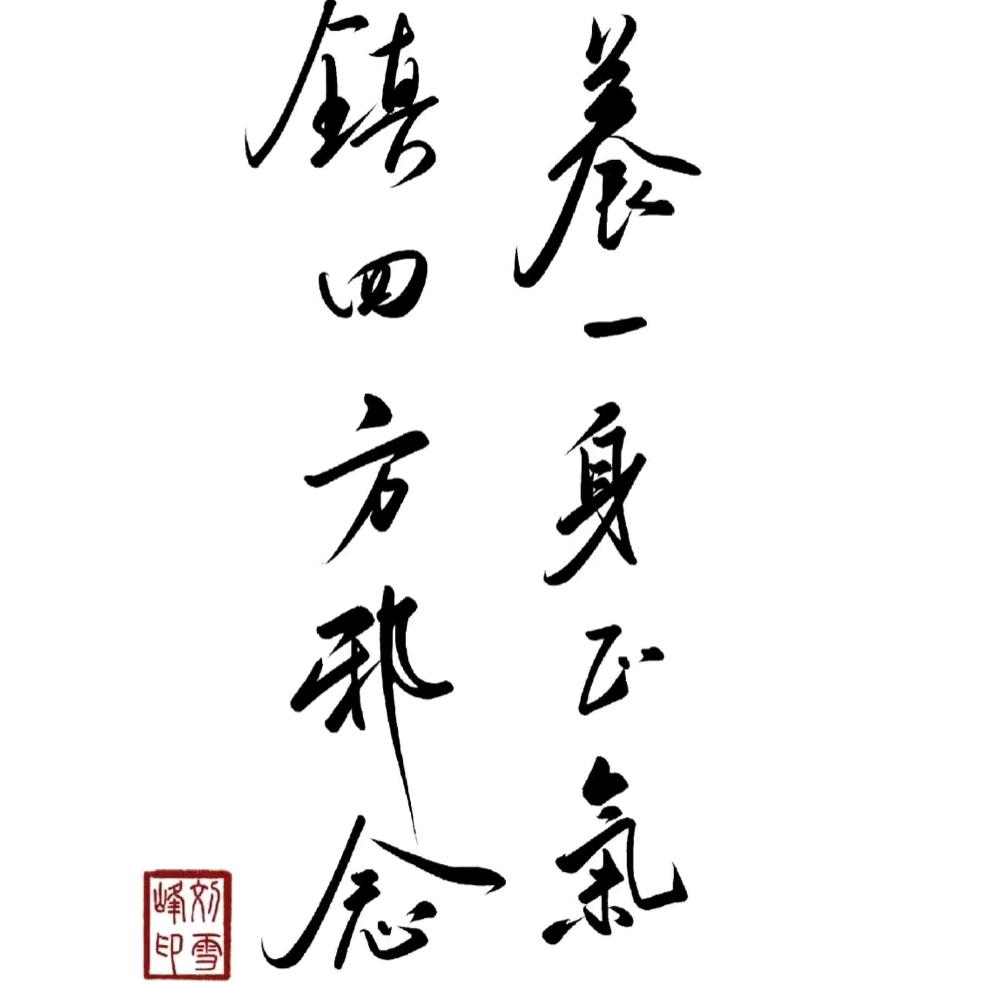 養一身正氣
鎮四方邪念
刘雪峰印